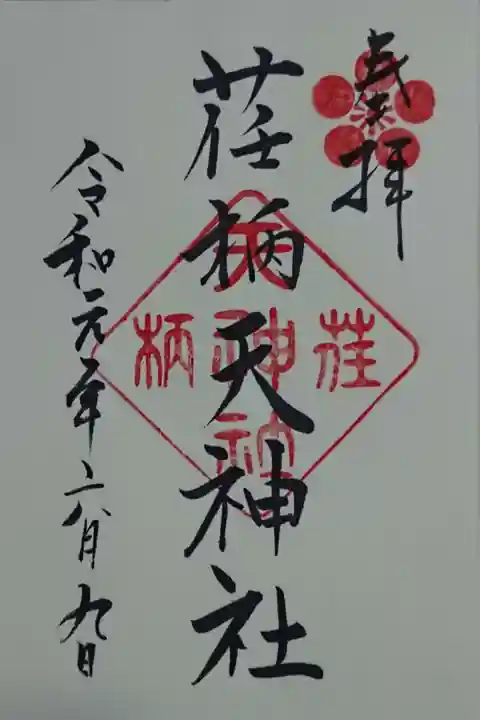 奉拝
荏柄天神社
荏
天神社
柄
令和元年六月九日